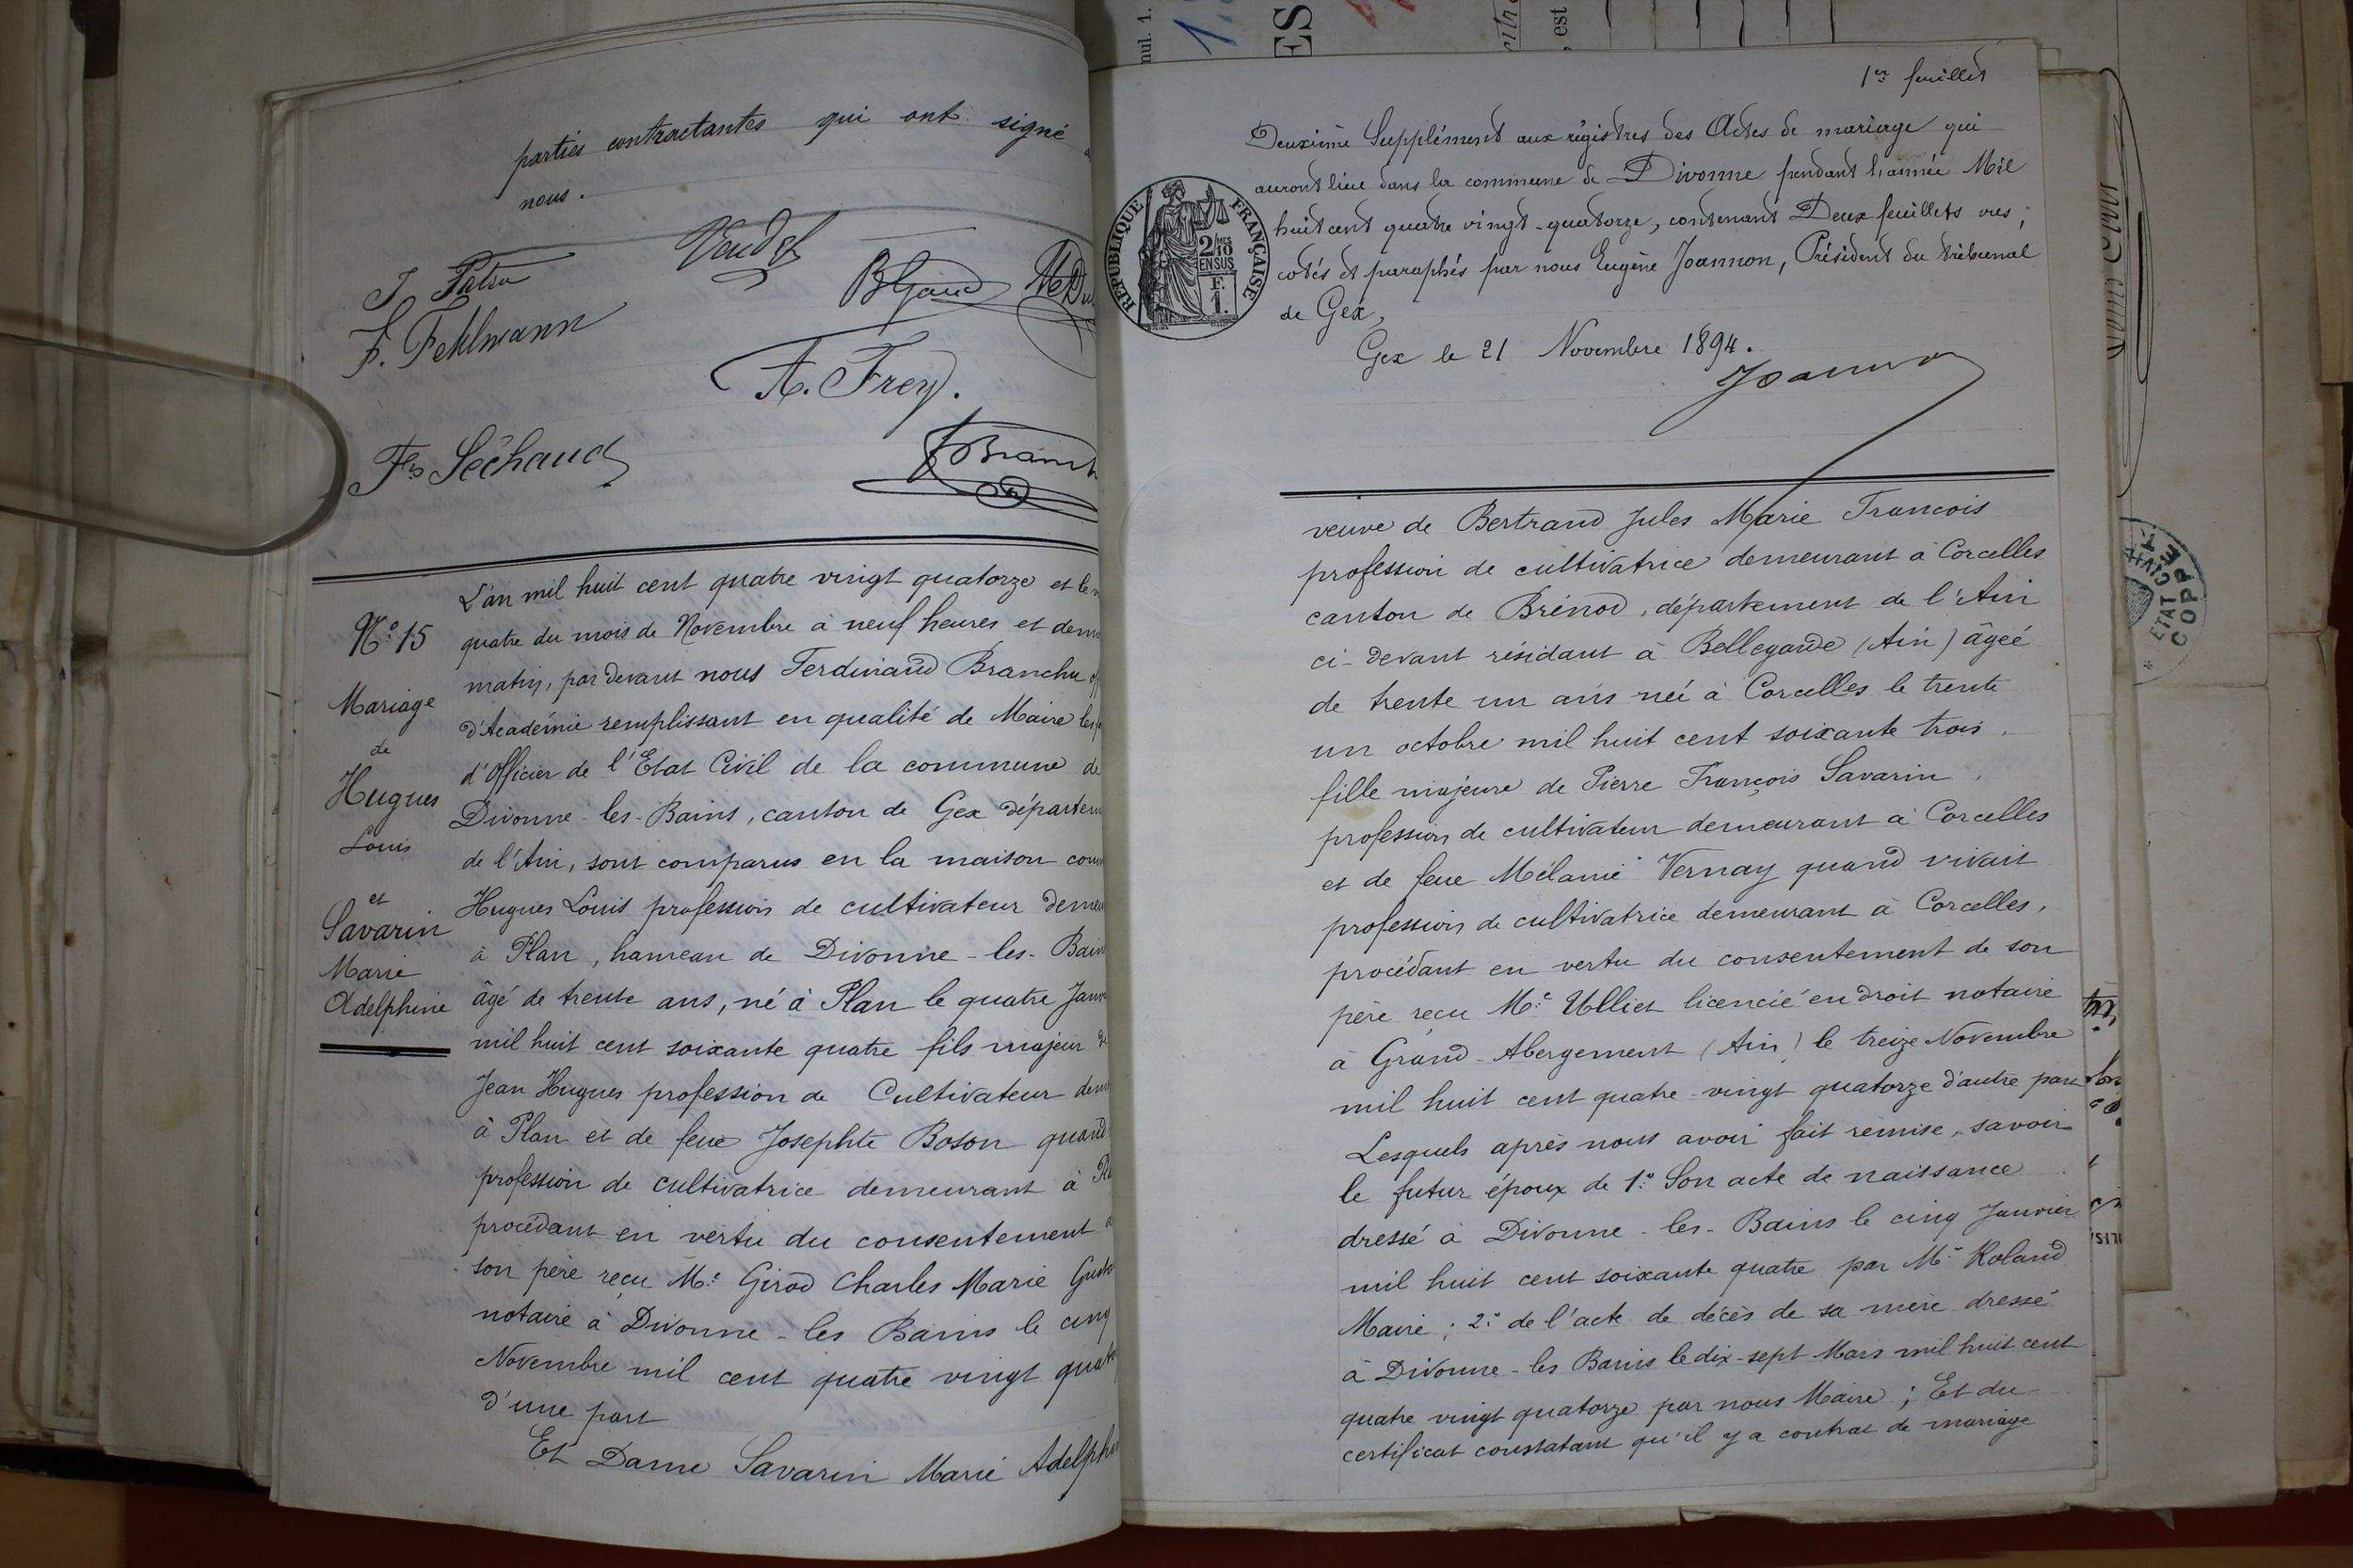 parties contractantes qui ont signé
nous.
J Patru
Vendel
F. Fehlmann
A. Frey.
Fs Séchaud
Branch
L'an mil huit cent quatre vingt quatorze et le
quatre du mois de Novembre à neuf heures et dem
matin, par devant nous Ferdinand Branchu
d'Académie remplissant en qualité de Maire les
d'Officier de l'Etat Civil de la commune de
Divonne-les-Bains, canton de Gex départem
de l'Ain, sont comparus en la maison com
Hugues Louis profession de cultivateur demeu
à Plan, hameau de Divonne-les-Bain
âgé de trente ans, né à Plan le quatre Janv
mil huit cent soixante quatre fils majeur d
Jean Hugues profession de Cultivateur dem
à Plan et de feue Josephte Boson quand
profession de cultivatrice demeurant à Pl
procédant en vertu du consentement
son père reçu Me Girod Charles Marie Gust
notaire à Divonne-les Bains le cinq
Novembre mil cent quatre vingt quato
d'une part
Et Dame Savarin Marie Adelphi
N° 15
Mariage
de
Hugues
Louis
et
Savarin
Marie
Adelphine
1er feuillet
Deuxième Supplément aux régistres des Actes de mariage qui
auront lieu dans la commune de Divonne pendant l'année Mil
huit cent quatre vingt-quatorze, contenant Deux feuillets vus,
cotés et paraphés par nous Eugène Joannon, Président du tribunal
de Gex,
Gex le 21 Novembre 1894.
Joannon
RÉPUBLIQUE FRANÇAISE
2/10
EN SUS
F.
1.
veuve de Bertrand Jules Marie Francois
profession de cultivatrice demeurant à Corcelles
canton de Brénod, département de l'Ain
ci-devant résidant à Bellegarde (Ain) âgée
de trente un ans née à Corcelles le trente
un octobre mil huit cent soixante trois,
fille majeure de Pierre François Savarin,
profession de cultivateur demeurant à Corcelles
et de feue Mélanie Vernay quand vivait
profession de cultivatrice demeurant à Corcelles,
procédant en vertu du consentement de son
père reçu Me Ulliet licencié en droit notaire
à Grand-Abergement (Ain) le treize Novembre
mil huit cent quatre-vingt quatorze d'autre part
Lesquels après nous avoir fait remise, savoir
le futur époux de 1° Son acte de naissance
dressé à Divonne-les-Bains le cinq Janvier
mil huit cent soixante quatre par Mr Roland
Maire; 2° de l'acte de décès de sa mère dressé
à Divonne-les Bains le dix-sept Mars mil huit cent
quatre vingt quatorze par nous Maire; Et du
certificat constatant qu'il y a contrat de mariage
ETAT CIVIL
COPPET
ES
, est
nul. 1.